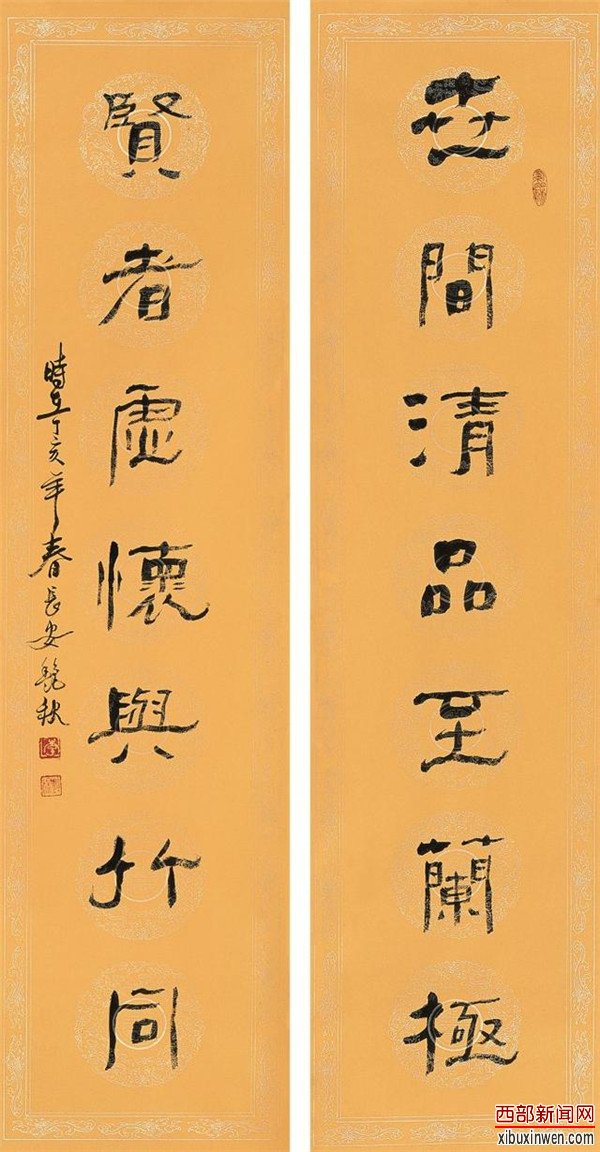 世間清品至蘭極
賢者虛懷與竹同
時在丁亥年春長安秋
西部新闻网
xibuxinwen.com